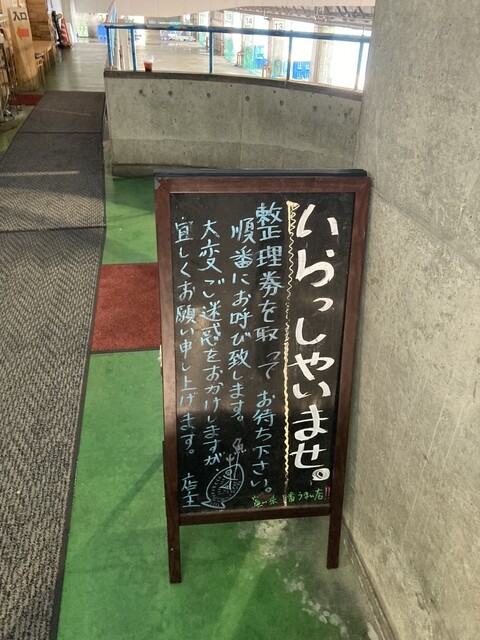 いらっしゃいませ。
整理券を取って お待ち下さい。
順番にお呼び致します。
大変ご迷惑をおかけしますが、
宜しくお願い申し上げます。 店主
うまい店!!
入口
14
13